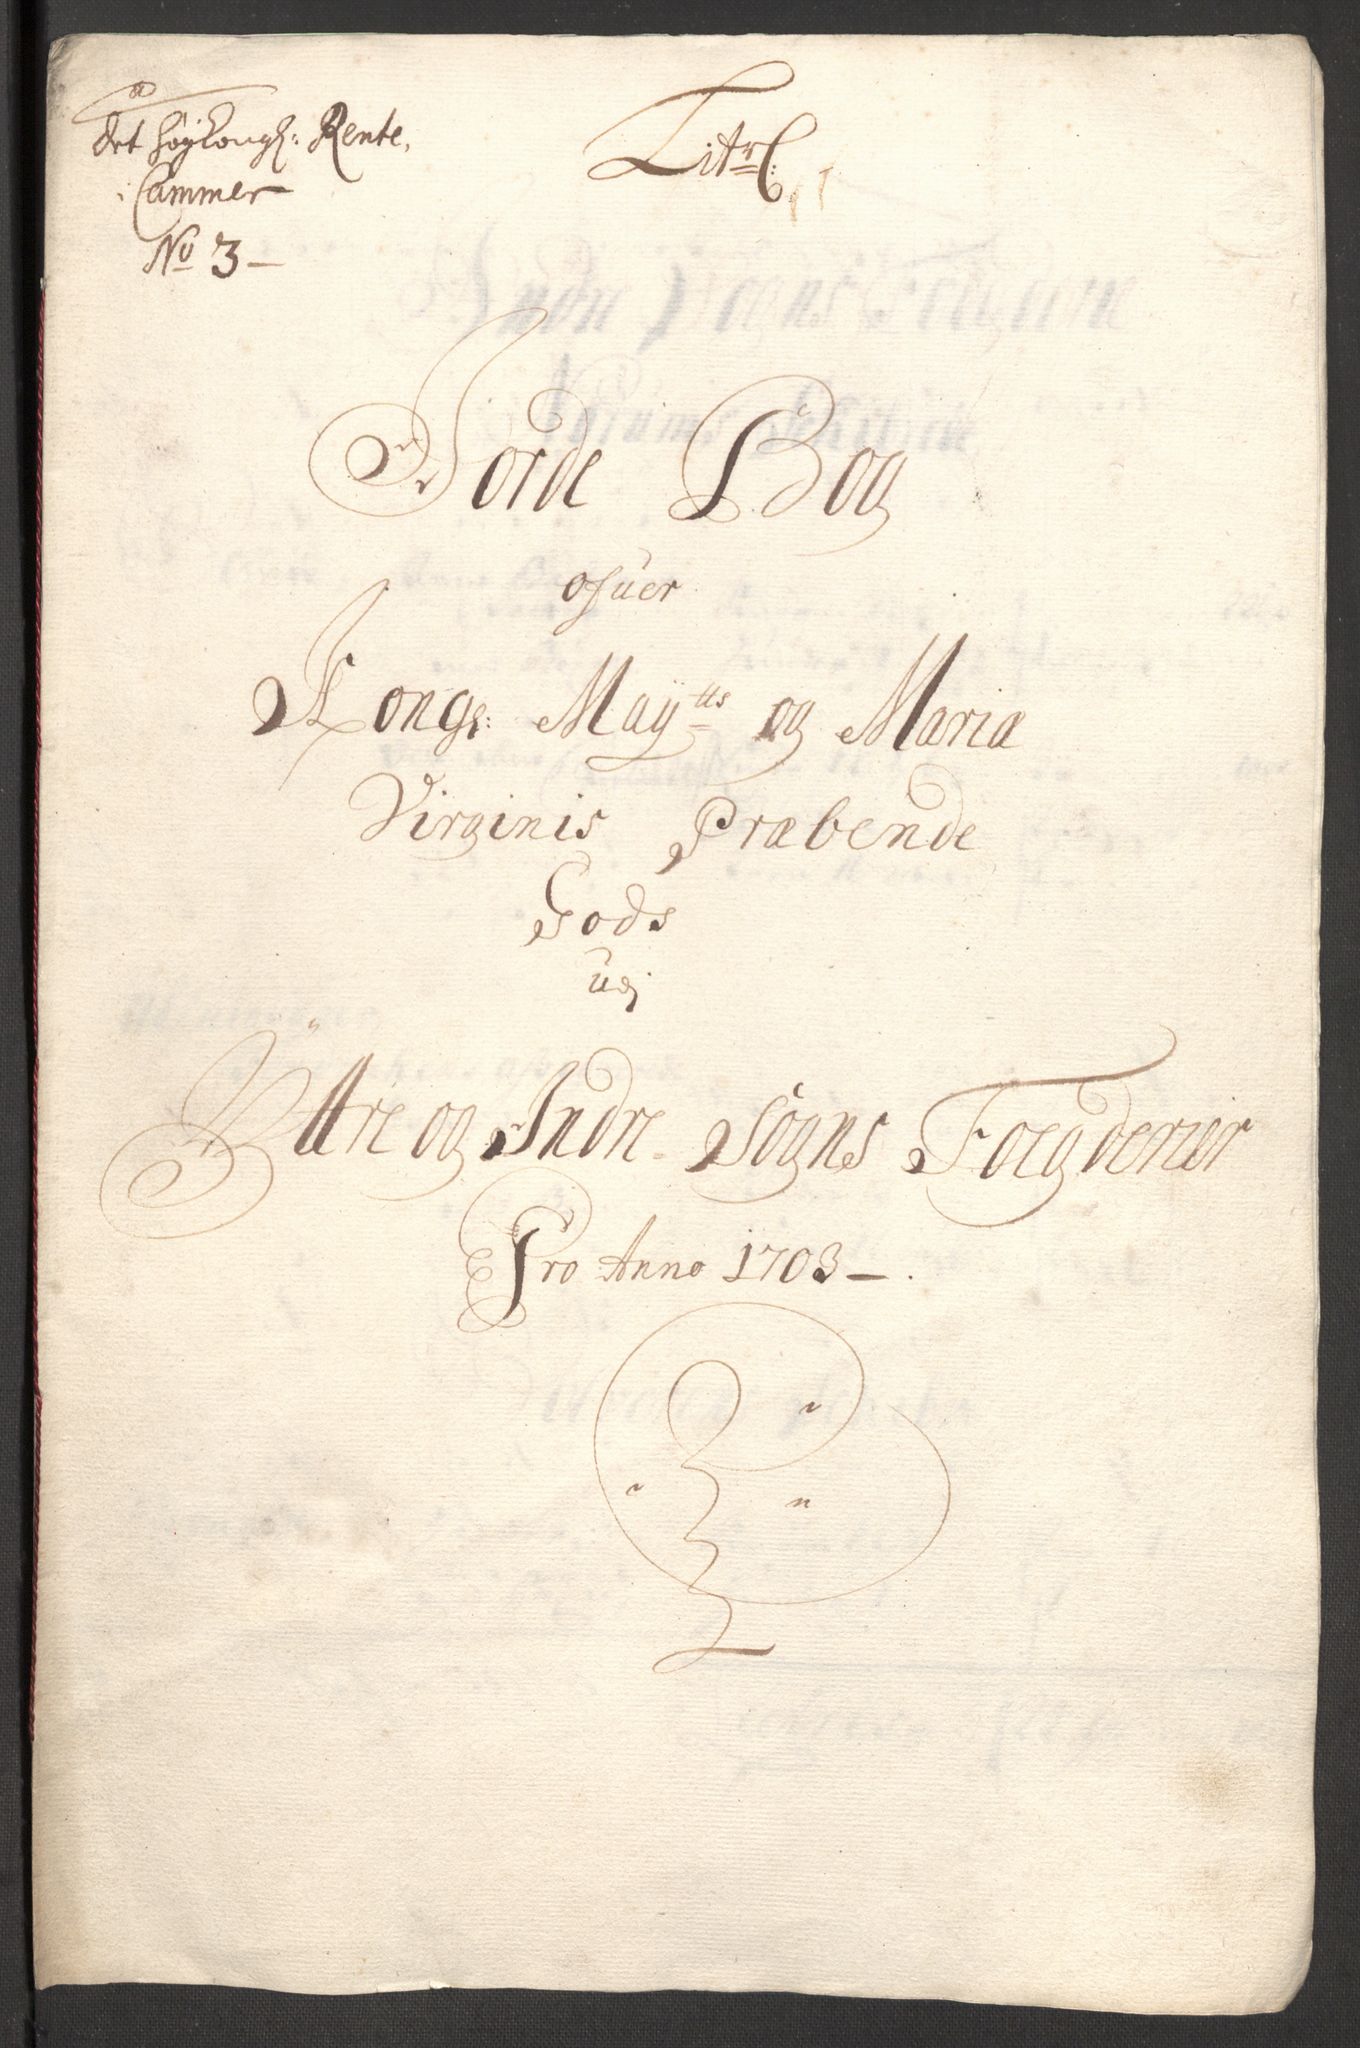 Det höÿkongl: Rente,
Cammer
No 3 –
Litr C:
Jorde Bog
ofuer
Kongl: Maÿtts og Mariæ
Virginis Præbende
Gods
udj
Ÿttre og Indre Sogns Foegderier
Pro Anno 1703 –.